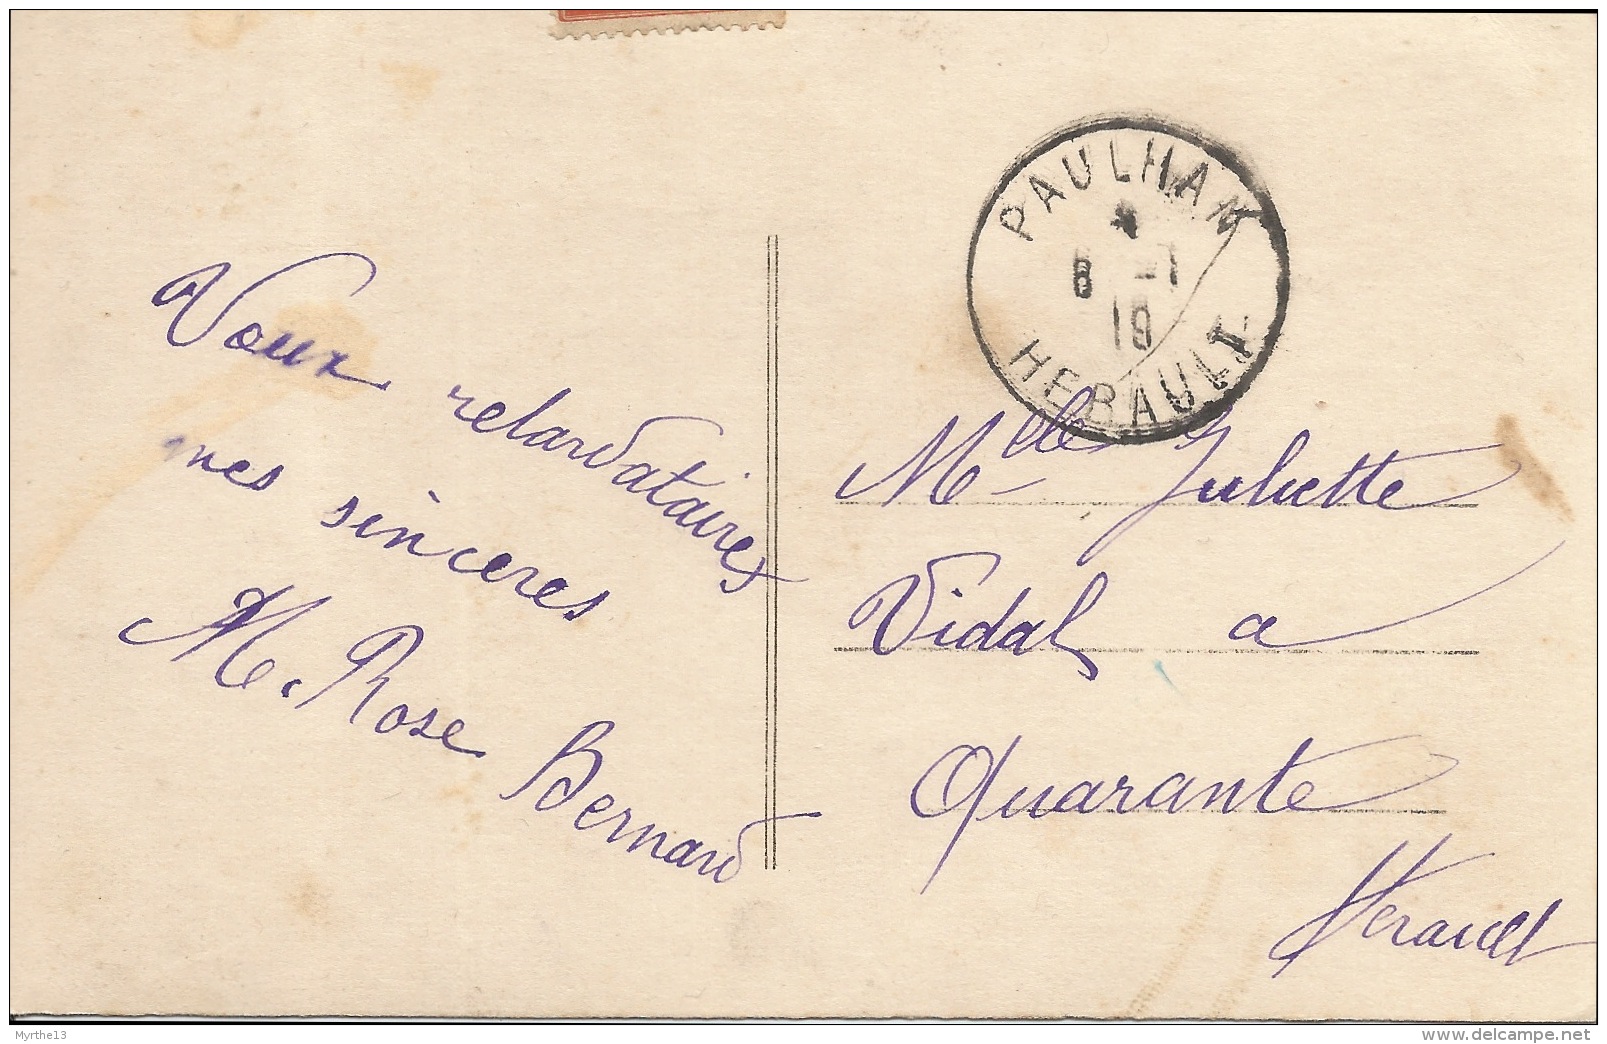 Voeux retardataires
mes sinceres
M. Rose Bernard
PAULHAN
*
6 -1
19
HERAULT
Mlle Juliette
Vidal a
Quarante
Herault
Myrthe13
www.delcampe.net